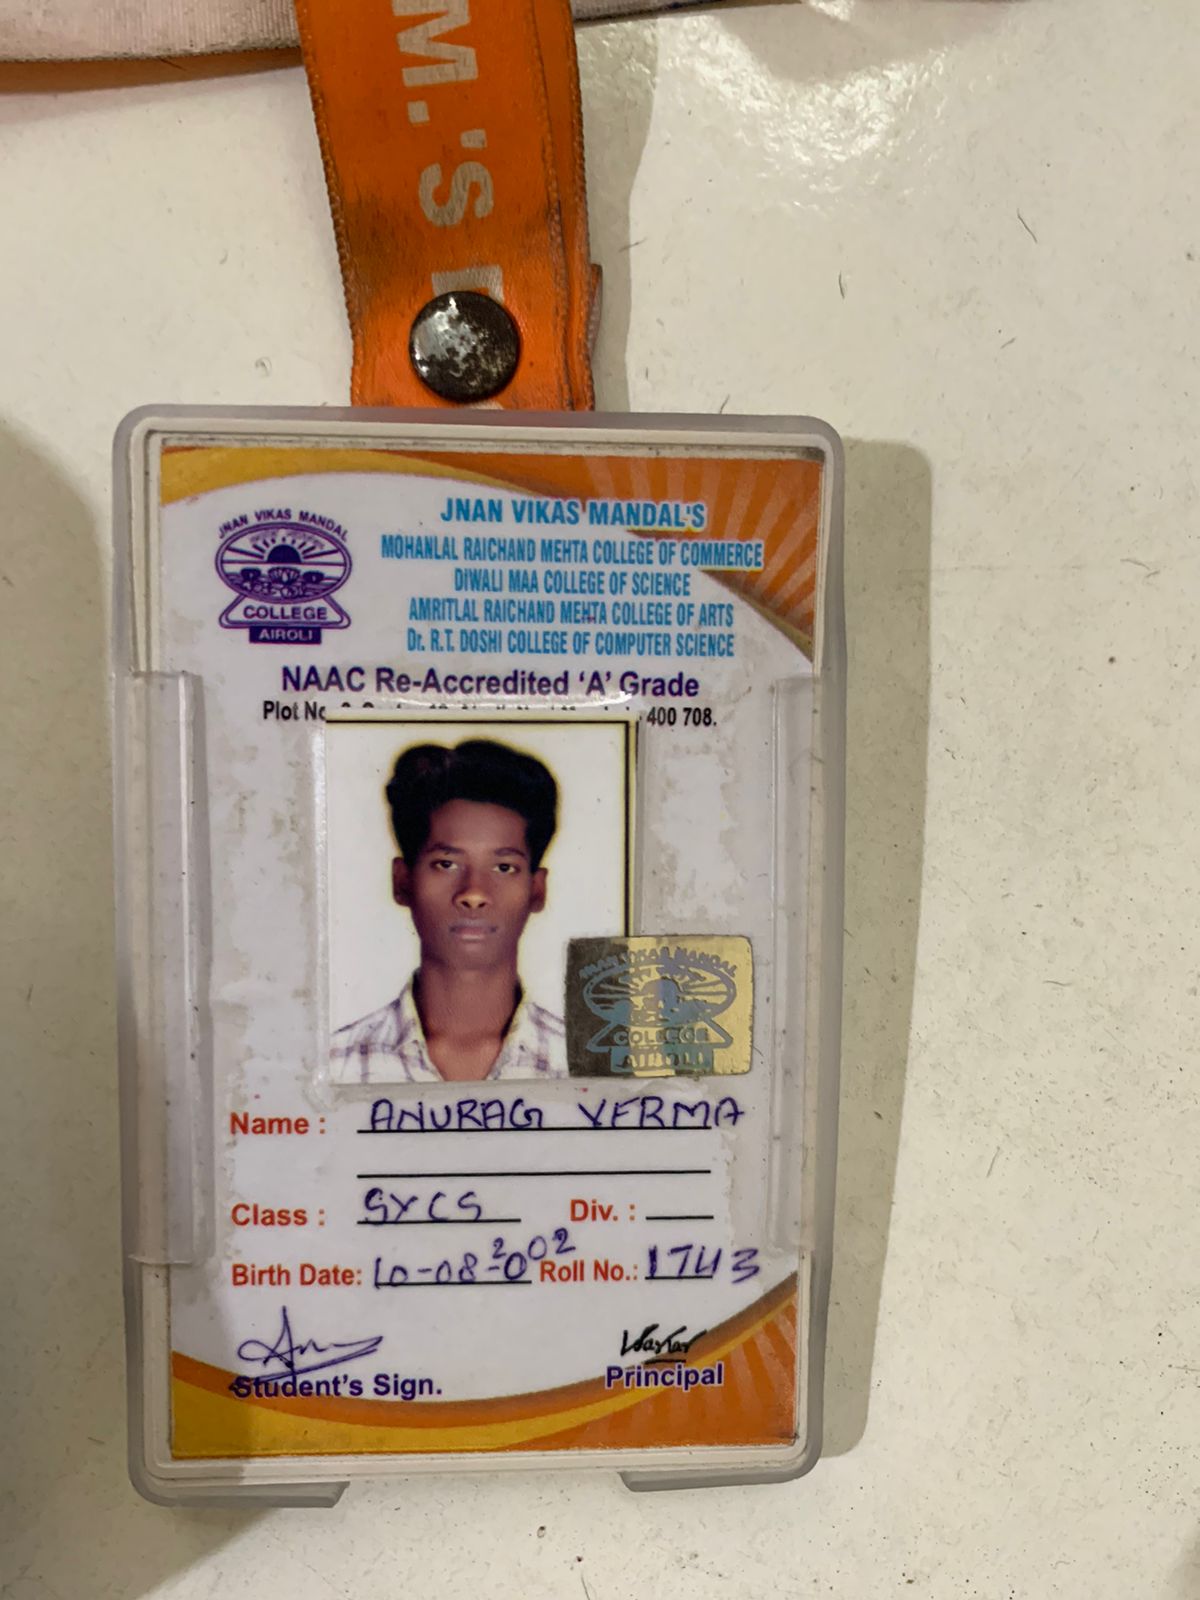 M.'S
JNAN VIKAS MANDAL
COLLEGE
AIROLI
JNAN VIKAS MANDAL'S
MOHANLAL RAICHAND MEHTA COLLEGE OF COMMERCE
DIWALI MAA COLLEGE OF SCIENCE
AMRITLAL RAICHAND MEHTA COLLEGE OF ARTS
Dr. R.T. DOSHI COLLEGE OF COMPUTER SCIENCE
NAAC Re-Accredited 'A' Grade
Plot 400 708.
JNAN VIKAS MANDAL
COLLEGE
AIROLI
Name : ANURAG VERMA
Class : SYCS Div. :
Birth Date: 10-08-2002 Roll No.: 1743
Student's Sign. Principal